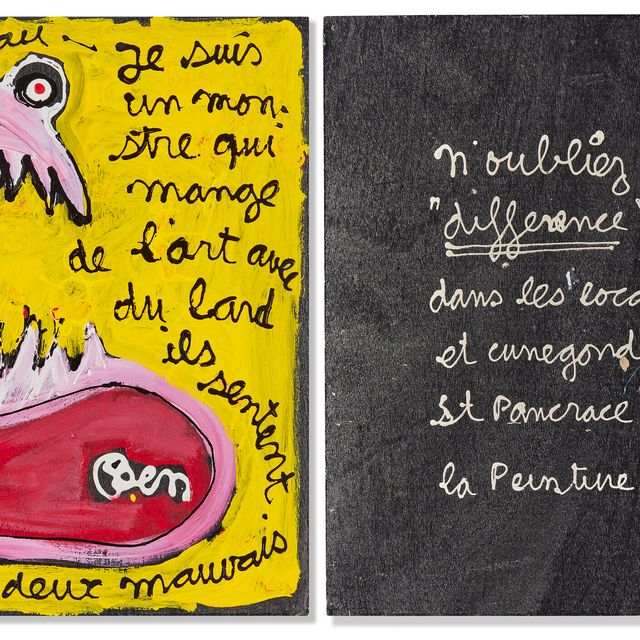 Je suis
un mon-
stre qui
mange
de l'art avec
du lard
ils
sentent
deux mauvais
Ben
n'oubliez
"difference"
dans les loca
et cunegond
St Pancrace
la Peinture